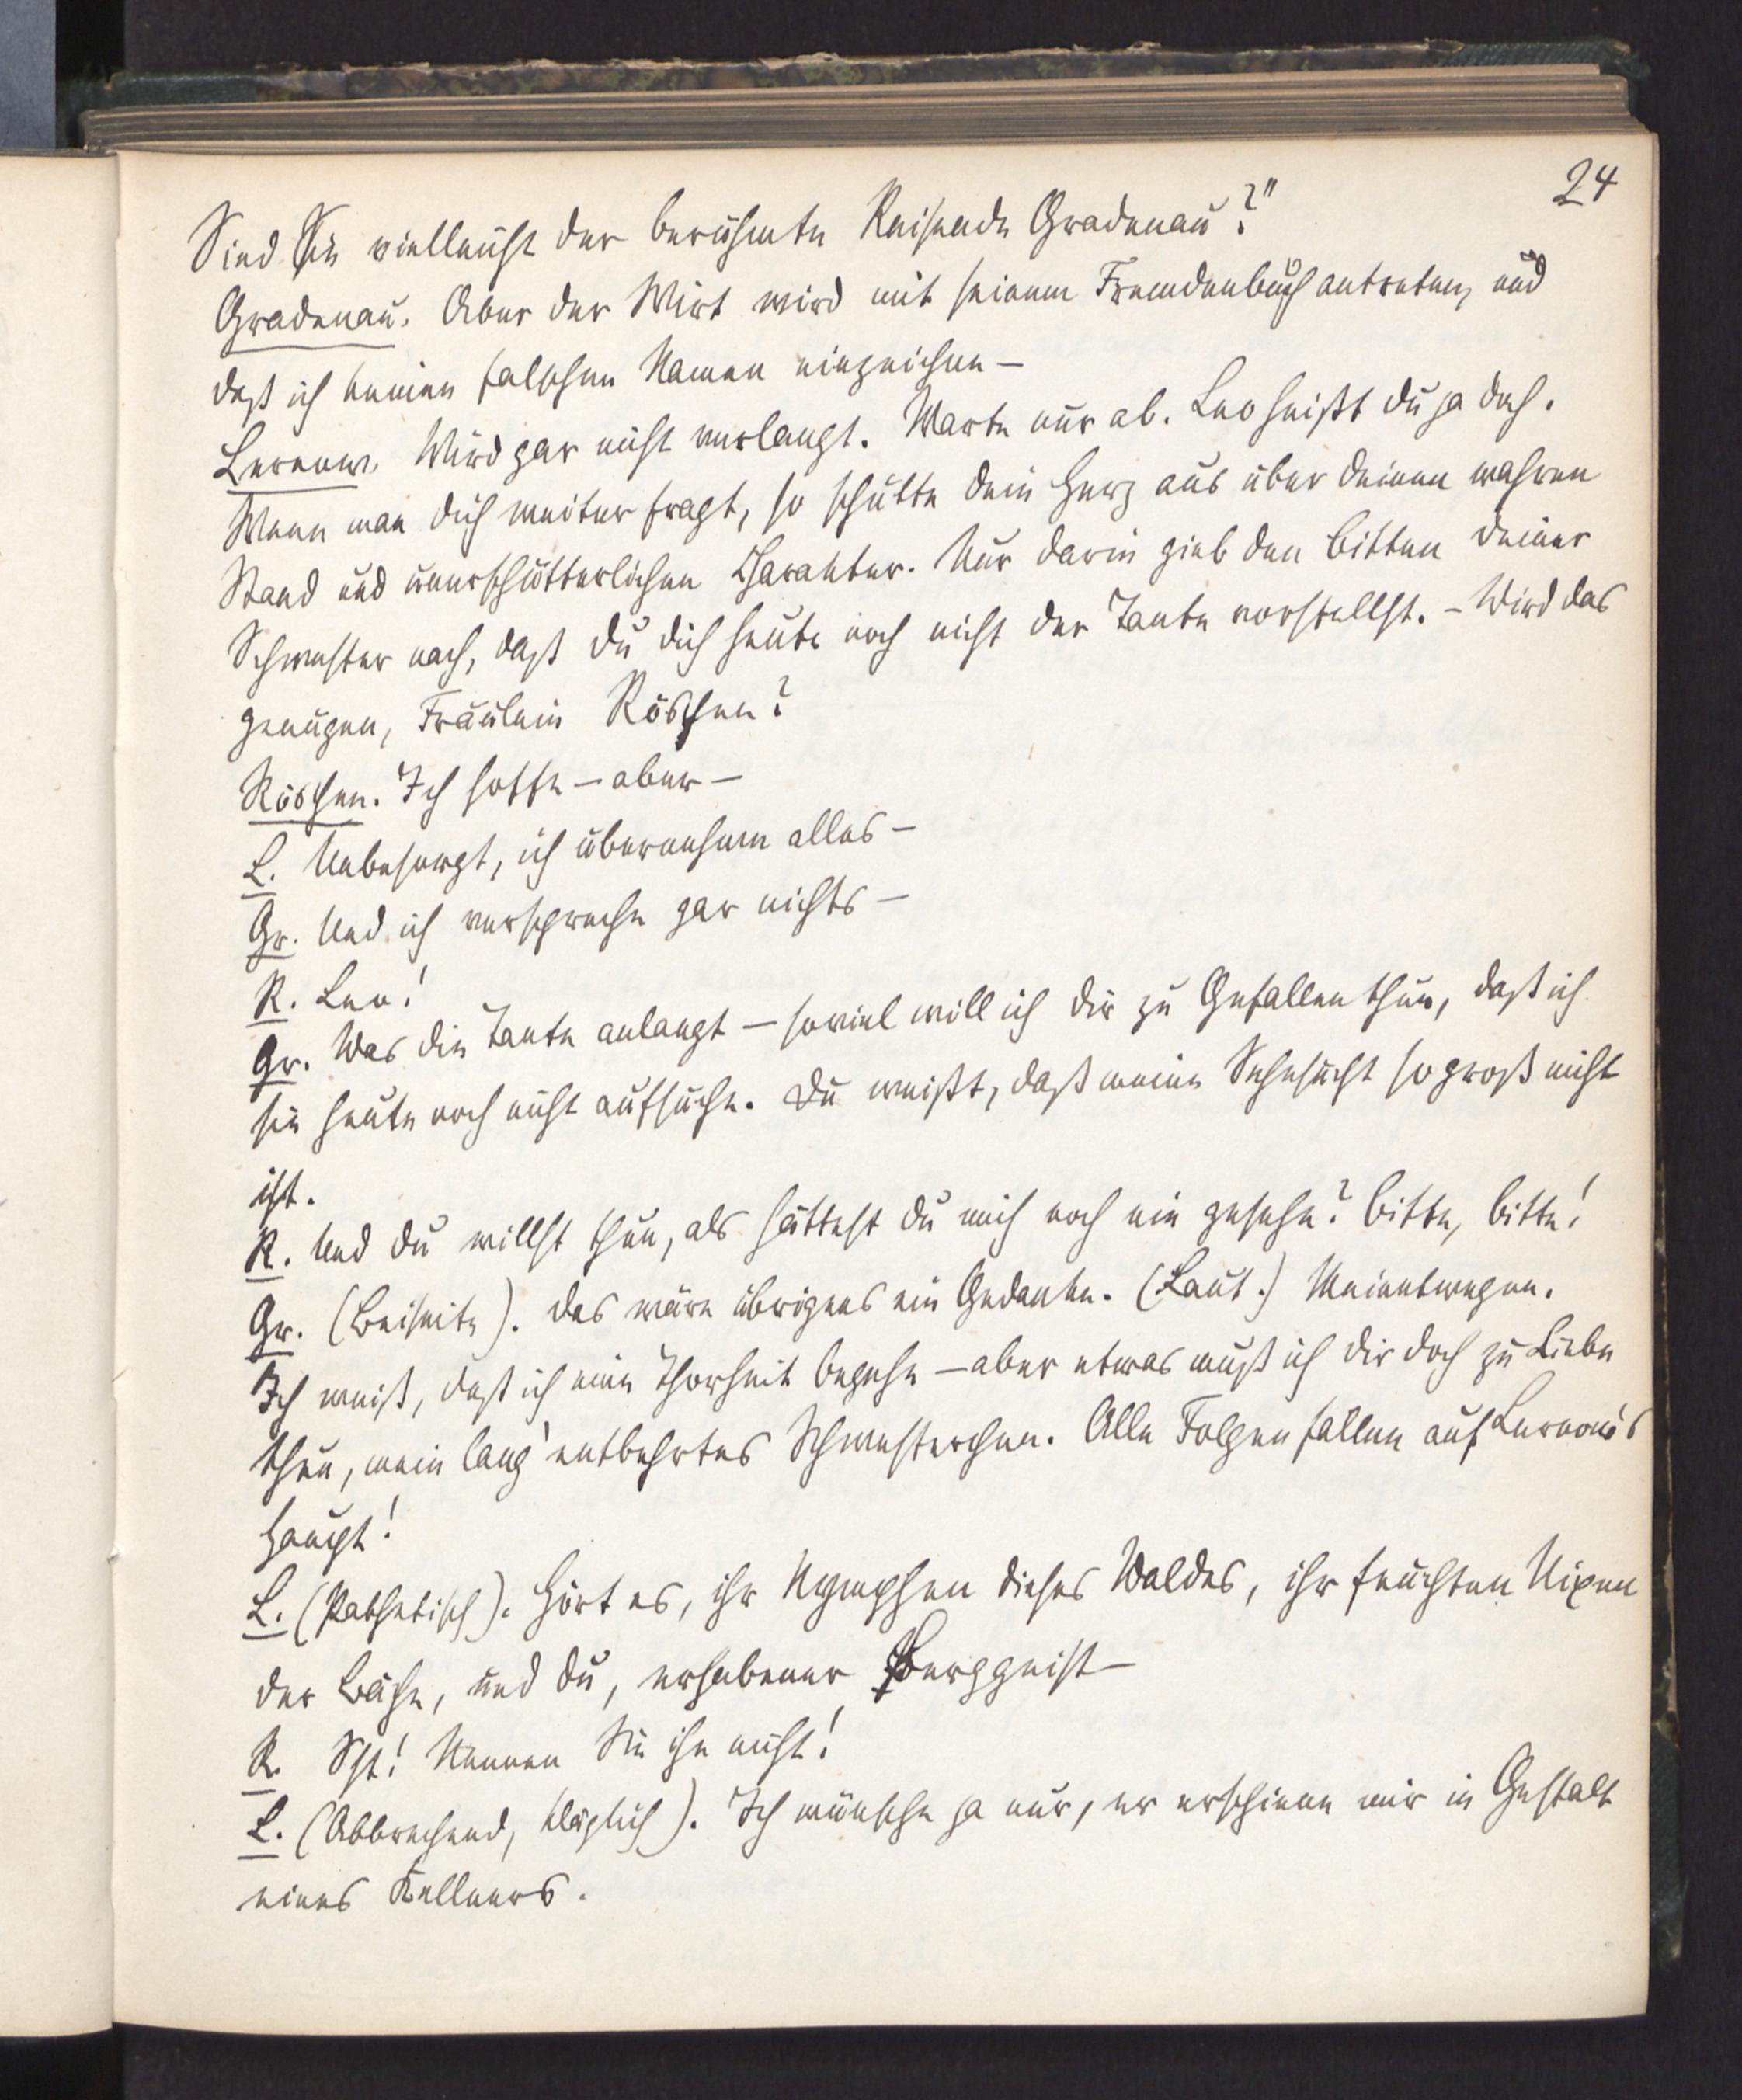 24
Sind Sie vielleicht der berühmte Reisende Gradenau?"
Gradenau. Aber der Wirt wird mit seinem Fremdenbuch antreten, und
daß ich keinen falschen Namen einzeichne —
Lernow. Wird gar nicht verlangt. Warte nur ab. Leo heißt du ja doch.
Wenn man dich weiter fragt, so schütte dein Herz aus über deinen wahren
Stand und unerschütterlichen Charakter. Nur darin gieb den Bitten deiner
Schwester nach, daß du dich heute noch nicht der Tante vorstellst. – Wird das
genügen, Fräulein Röschen?
Röschen. Ich hoffe – aber –
L. Unbesorgt, ich übernehme alles –
Gr. Und ich verspreche gar nichts –
R. Leo!
Gr. Was die Tante anlangt – soviel will ich dir zu Gefallen thun, daß ich
sie heute noch nicht aufsuche. Du weißt, daß meine Sehnsucht so groß nicht
ist.
R. Und du willst thun, als hättest du mich noch nie gesehn? Bitte, bitte!
Gr. (Beiseite). Das wäre übrigens ein Gedanke. (Laut.) Meinetwegen.
Ich weiß, daß ich eine Thorheit begehe – aber etwas muß ich dir doch zu Liebe
thun, mein lang' entbehrtes Schwesterchen. Alle Folgen fallen auf Lernow's
Haupt!
L. (Pathetisch). Hört es, ihr Nymphen dieses Waldes, ihr feuchten Nixen
der Bäche, und du, erhabener Berggeist –
R. Pst! Nennen Sie ihn nicht!
L. (Abbrechend, kläglich). Ich wünsche ja nur, er erschiene mir in Gestalt
eines Kellners.